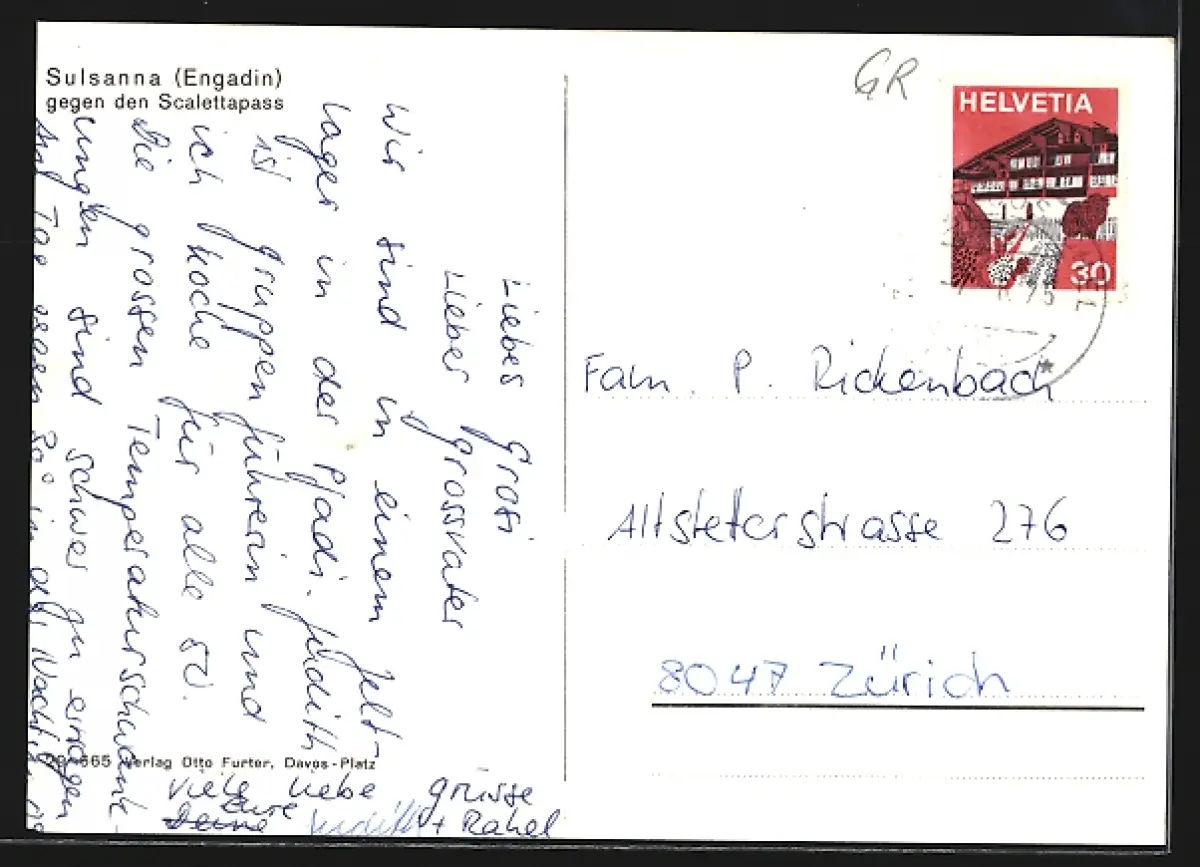 Sulsanna (Engadin)
gegen den Scalettapass
GR
HELVETIA
30
Liebes Grosi
Lieber Grossvater
Wir sind in einem Zelt-
lager in der Pfadi. Judith
ist Gruppenführerin und
ich koche für alle 50.
Die grossen Temperaturschwank-
ungen sind schwer zu ertragen
Am Tag gegen 30° in der Nacht
Viele liebe Grüsse
Eure
Deine Judith + Rahel
665 Verlag Otto Furter, Davos-Platz
Fam. P. Rickenbach
Altstetterstrasse 276
8047 Zürich